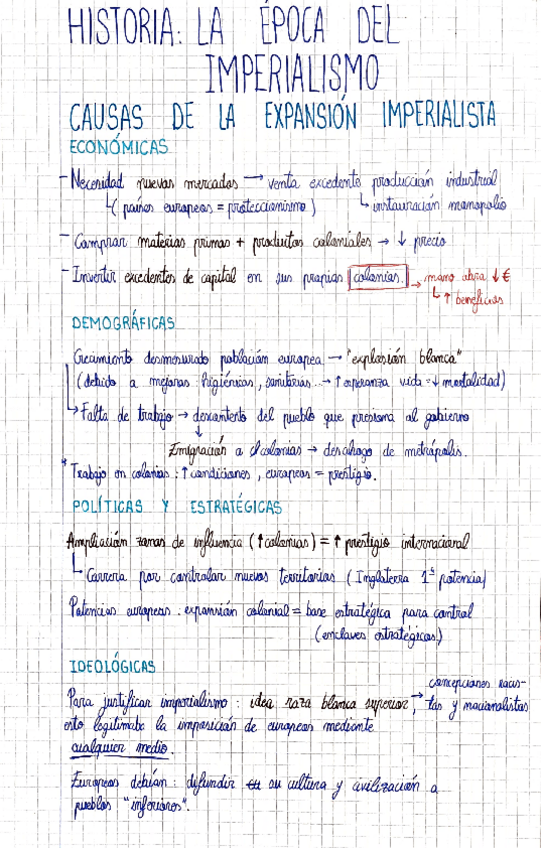 HISTORIA: LA ÉPOCA DEL
IMPERIALISMO
CAUSAS DE LA EXPANSIÓN IMPERIALISTA
ECONÓMICAS
- Necesidad nuevos mercados → venta excedente producción industrial
↳ (países europeos = proteccionismo) ↳ instauración monopolio
- Comprar materias primas + productos coloniales → ↓ precio
- Invertir excedentes de capital en sus propias colonias. → mano obra ↓ €
↳ ↑ beneficios
DEMOGRÁFICAS
Crecimiento desmesurado población europea → "explosión blanca"
(debido a mejoras higiénicas, sanitarias → ↑ esperanza vida = ↓ mortalidad)
↳ Falta de trabajo → descontento del pueblo que presiona al gobierno
↓
Emigración a colonias → desahogo de metrópolis.
* Trabajo en colonias: ↑ condiciones, europeos = prestigio.
POLÍTICAS Y ESTRATÉGICAS
Ampliación zonas de influencia (↑ colonias) = ↑ prestigio internacional
↳ Carrera por controlar nuevos territorios (Inglaterra 1ª potencia)
Potencias europeas: expansión colonial = base estratégica para control
(enclaves estratégicos)
IDEOLÓGICAS
Para justificar imperialismo: idea raza blanca superior, → concepciones racis-
tas y nacionalistas
esto legitimaba la imposición de europeos mediante
cualquier medio.
Europeos debían: difundir su cultura y civilización a
pueblos "inferiores".